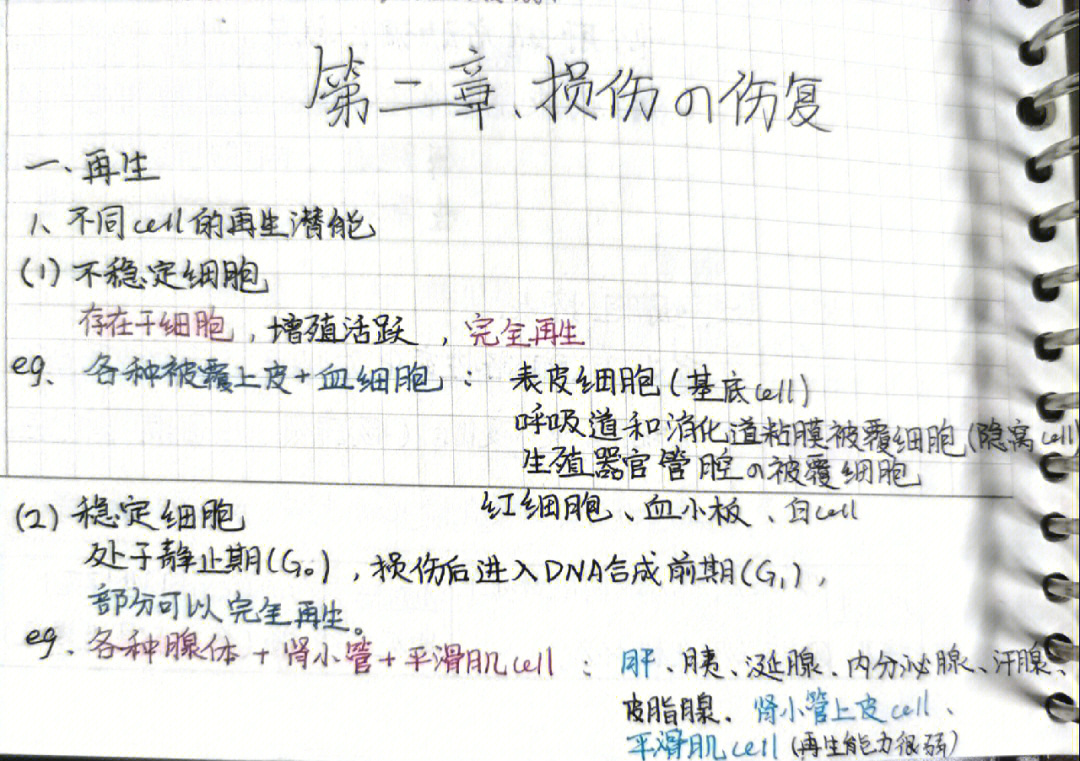 第二章、损伤の伤复
一、再生
1、不同cell的再生潜能
(1) 不稳定细胞
存在干细胞，增殖活跃，完全再生
eg、各种被覆上皮+血细胞：表皮细胞(基底cell)
呼吸道和消化道粘膜被覆细胞(隐窝cell)
生殖器官管腔の被覆细胞
红细胞、血小板、白cell
(2) 稳定细胞
处于静止期(G₀)，损伤后进入DNA合成前期(G₁)，
部分可以完全再生。
eg、各种腺体+肾小管+平滑肌cell：肝、胰、涎腺、内分泌腺、汗腺、
皮脂腺、肾小管上皮cell、
平滑肌cell(再生能力很弱)